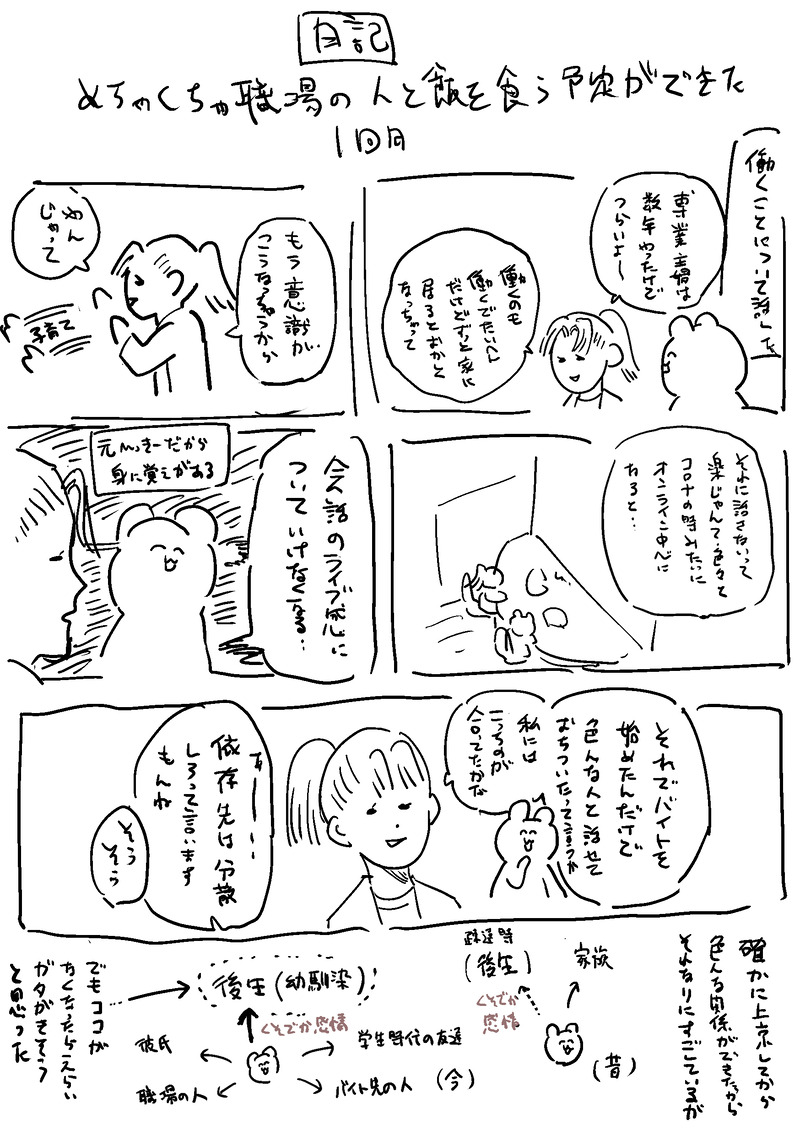 日記
めちゃくちゃ職場の人と飯を食う予定ができた
1回目
働くことについて話した
専業主婦は
数年やったけど
つらいよー
働くのも
働くでたいへん
だけどずっと家に
居るとおかしく
なっちゃって
もう意識が
こうなっちゃうから
めん
じゃって
子育て
それに話さないって
楽じゃんて色々て
コロナの時みたいに
オンライン中心に
なると…
会話のライブ感に
ついていけなくなる…
元ヒッキーだから
身に覚えがある
それでバイトを
始めたんだけど
色んな人と話せて
おちついたって言うか
私には
こっちのが
合ってたかな
あー…
依存先は分散
しろって言います
もんね
そう
そう
確かに上京してから
色んな関係ができたから
それなりにすごしているが
家族
疎遠時
(後生)
くそでか
感情
(昔)
後生(幼馴染)
くそでか感情
学生時代の友達
バイト先の人
(今)
彼氏
職場の人
でもココが
なくなったらえらい
ガタがきそう
と思った